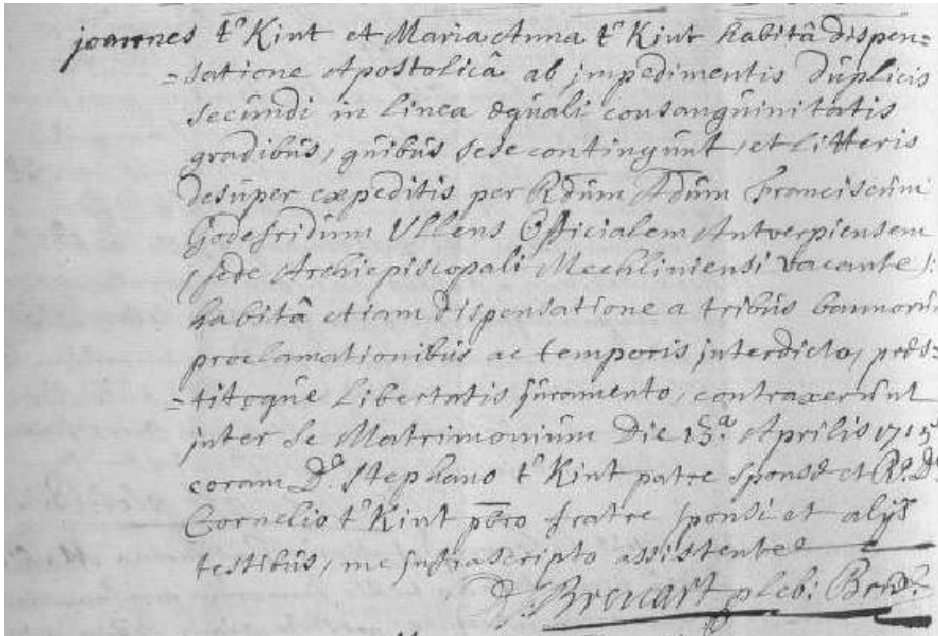 joannes t' Kint et Maria Anna t' Kint habitâ dispen=
=satione Apostolicâ ab jmpedimentis duplicis
secundi in linea æquali consanguinitatis
gradibus, quibus sese contingunt, et litteris
desuper expeditis per Rdum Adum Franciscum
Godefridum Ullens Officialem Antverpiensem
(sede Archiepiscopali Mechliniensi vacante):
habitâ etiam dispensatione a tribus bannorum
proclamationibus ac temporis jnterdicto, præs=
=titoque libertatis juramento, contraxerunt
jnter se Matrimonium Die 13.a Aprilis 1715
coram Do. Stephano t' Kint patre sponsæ et R. Do.
Cornelio t' Kint pbro fratre sponsi et alijs
testibus, me jnfrascripto assistente
Brouart pleb: